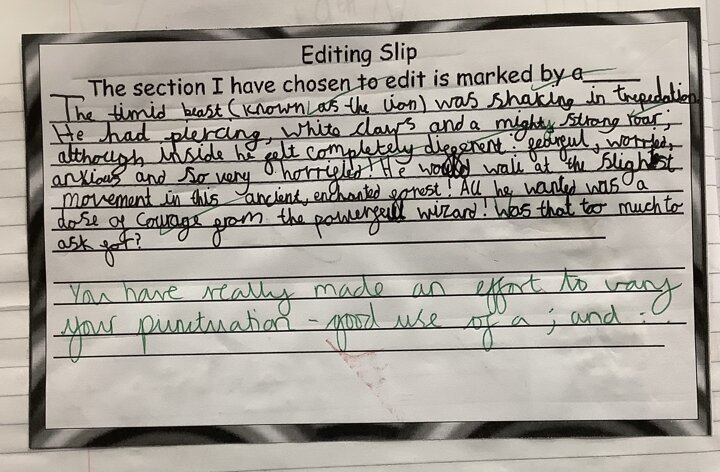 Editing Slip
The section I have chosen to edit is marked by a____
The timid beast (known as the lion) was shaking in trepedation.
He had piercing, white claws and a mighty strong roar;
although inside he felt completely different: fearful, worried,
anxious and so very horrified! He would wail at the slightest
movement in this ancient, enchanted forest! All he wanted was a
dose of courage from the powerfull wizard! Was that too much to
ask for?
You have really made an effort to vary
your punctuation - good use of a ; and :.